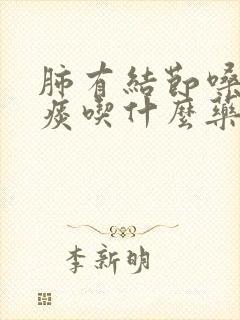 肺有結節嗓
痰喫什麼藥
李新明